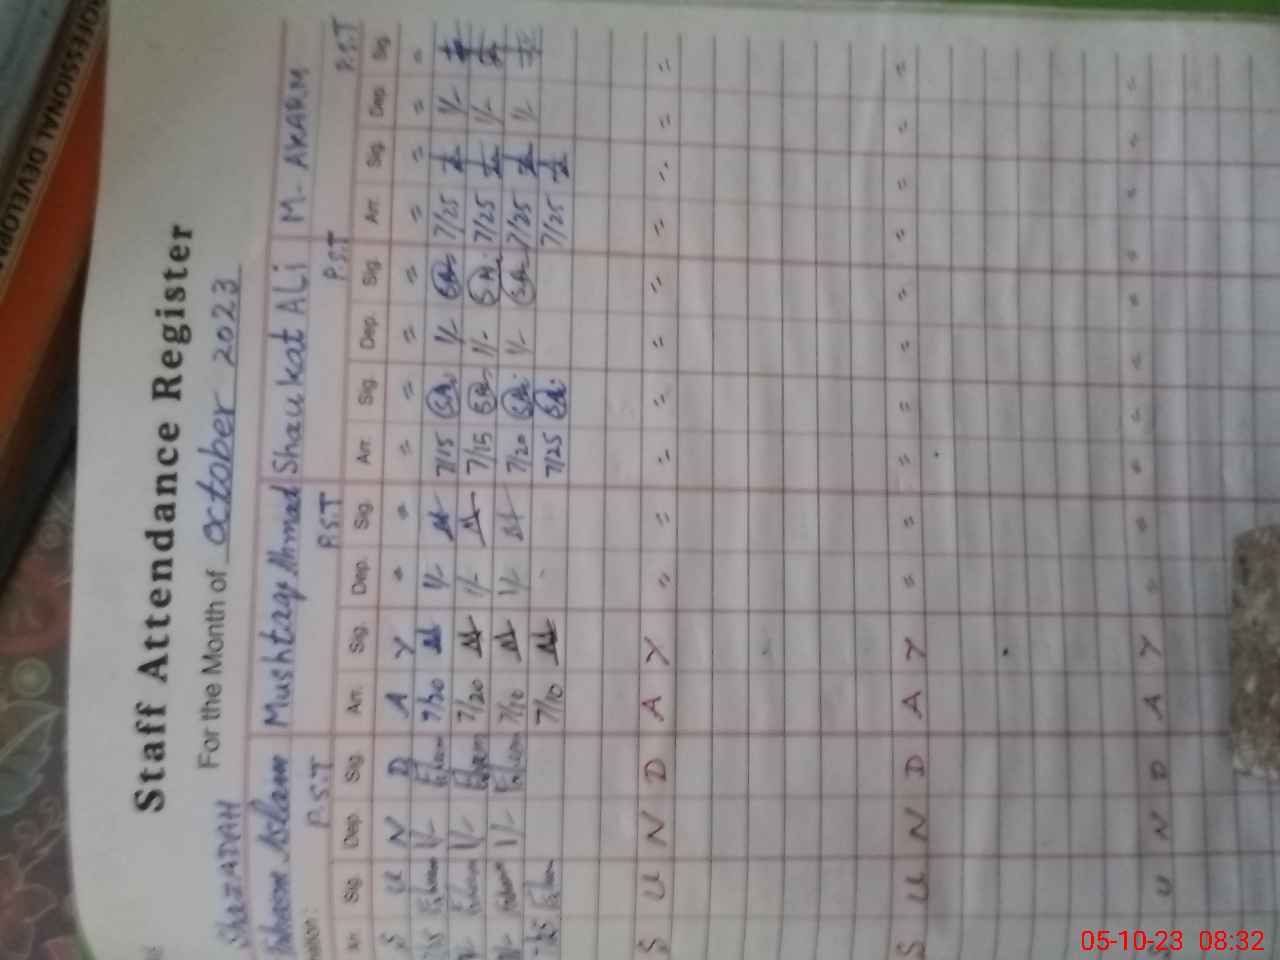 PROFESSIONAL DEVELOPM
Staff Attendance Register
For the Month of October 2023
ShEZADAH
Aslam Mushtaq Ahmad Shaukat ALi M. AKARM
P.S.T P.S.T P.S.T P.S.T
Arr. Sig. Dep. Sig. Arr. Sig. Dep. Sig. Arr. Sig. Dep. Sig. Arr. Sig. Dep. Sig.
S U N D A Y = = = = = = = = = =
1/- 7/20 1/- 7/15 SA 1/- SA 7/25 1/-
1/- 7/20 1/- 7/15 SA 1/- SA 7/25 1/-
1/- 7/10 1/- 7/20 SA 1/- SA 7/25 1/-
7/10 7/25 SA 7/25
S U N D A Y = = = = = = = = = =
S U N D A Y = = = = = = = = = =
S U N D A Y = = = = = = = = = =
05-10-23 08:32